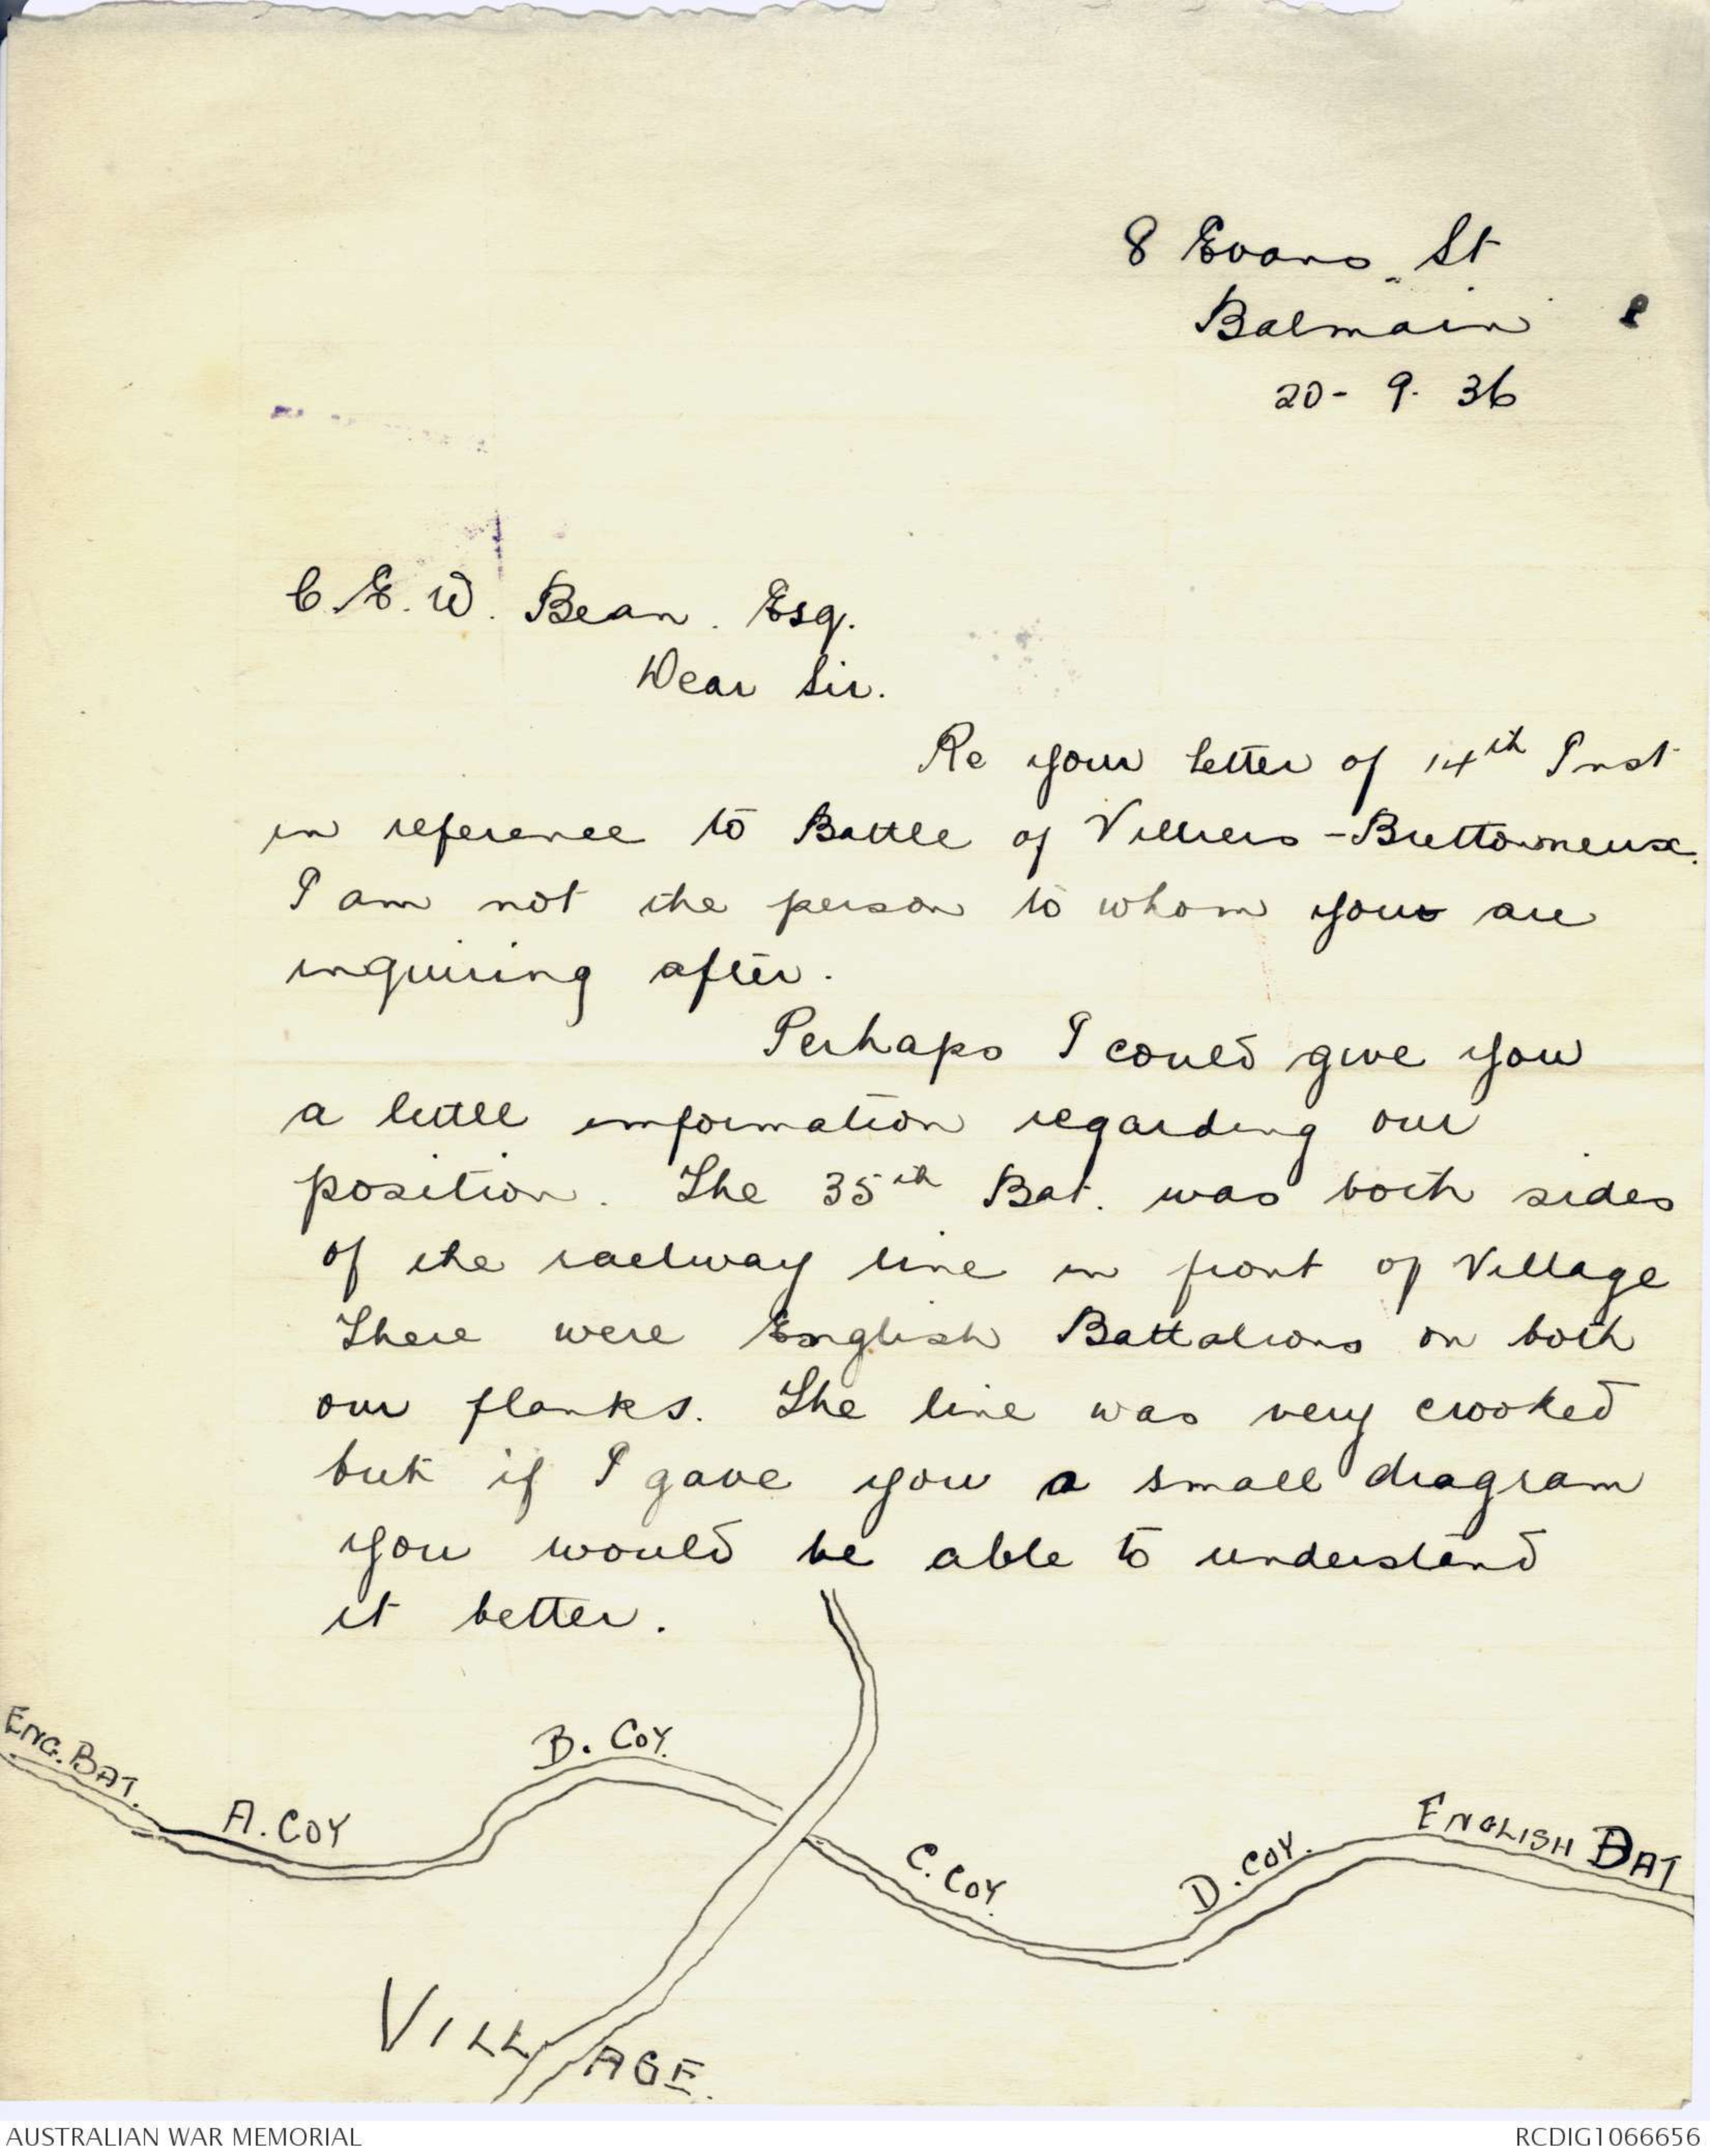 8 Evans St
Balmain
20 - 9. 36
C. E. W. Bean. Esq.
Dear Sir.
Re your letter of 14th Inst
in reference to Battle of Villiers - Brettonneux.
I am not the person to whom you are
inquiring after.
Perhaps I could give you
a little information regarding our
position. The 35th Bat. was both sides
of the railway line in front of Village
There were English Battalions on both
our flanks. The line was very crooked
but if I gave you a small diagram
you would be able to understand
it better.
ENG. BAT.
A. COY
B. COY.
C. COY.
D. COY.
ENGLISH BAT
VILLAGE.
AUSTRALIAN WAR MEMORIAL
RCDIG1066656